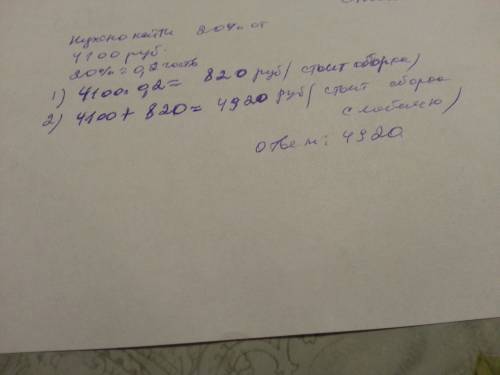 Нужно найти 20% от
4100 руб.
20% = 0,2 часть
1) 4100·0,2= 820 руб (стоит сборка)
2) 4100+ 820= 4920 руб (стоит сборка
с мебелью)
Ответ: 4920